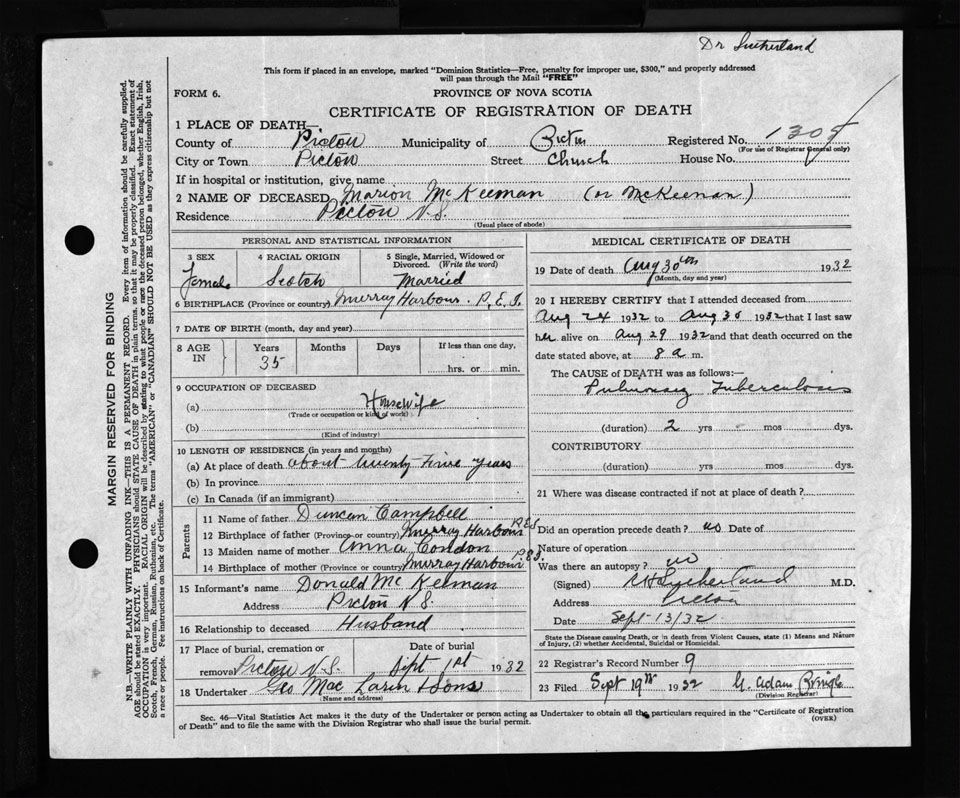 Dr Sutherland
This form if placed in an envelope, marked "Dominion Statistics—Free, penalty for improper use, $300," and properly addressed
will pass through the Mail "FREE"
FORM 6.
PROVINCE OF NOVA SCOTIA
CERTIFICATE OF REGISTRATION OF DEATH
1 PLACE OF DEATH—
County of Pictou Municipality of Pictou Registered No. 1305
(For use of Registrar General only)
City or Town Pictou Street Church House No.
If in hospital or institution, give name
2 NAME OF DECEASED Marion McKeeman (or McKeenan)
Residence Pictou N.S.
(Usual place of abode)
PERSONAL AND STATISTICAL INFORMATION
3 SEX 4 RACIAL ORIGIN 5 Single, Married, Widowed or
Divorced. (Write the word)
Female Scotch Married
6 BIRTHPLACE (Province or country) Murray Harbour. P.E.I.
7 DATE OF BIRTH (month, day and year)
8 AGE IN Years Months Days If less than one day,
35 hrs. or min.
9 OCCUPATION OF DECEASED
(a) Housewife
(Trade or occupation or kind of work)
(b)
(Kind of industry)
10 LENGTH OF RESIDENCE (in years and months)
(a) At place of death about twenty five years
(b) In province
(c) In Canada (if an immigrant)
Parents
11 Name of father Duncan Campbell
12 Birthplace of father (Province or country) Murray Harbour P.E.I.
13 Maiden name of mother Anna Condon
14 Birthplace of mother (Province or country) Murray Harbour P.E.I.
15 Informant's name Donald McKeeman
Address Pictou N.S.
16 Relationship to deceased Husband
17 Place of burial, cremation or Date of burial
removal Pictou N.S. Sept 1st 1932
18 Undertaker Geo MacLaren & Sons
(Name and address)
MEDICAL CERTIFICATE OF DEATH
19 Date of death Aug 30th 1932
(Month, day and year)
20 I HEREBY CERTIFY that I attended deceased from
Aug 24 1932 to Aug 30 1932 that I last saw
her alive on Aug 29 1932 and that death occurred on the
date stated above, at 8 a m.
The CAUSE of DEATH was as follows:—
Pulmonary Tuberculosis
(duration) 2 yrs mos dys.
CONTRIBUTORY
(duration) yrs. mos. dys.
21 Where was disease contracted if not at place of death?
Did an operation precede death? no Date of
Nature of operation
Was there an autopsy? no
(Signed) Sutherland M.D.
Address Pictou
Date Sept-13/32
State the Disease causing Death, or in death from Violent Causes, state (1) Means and Nature
of Injury, (2) whether Accidental, Suicidal or Homicidal.
22 Registrar's Record Number 9
23 Filed Sept 19th 1932 G. Adam
(Division Registrar)
Sec. 46—Vital Statistics Act makes it the duty of the Undertaker or person acting as Undertaker to obtain all the particulars required in the "Certificate of Registration
of Death" and to file the same with the Division Registrar who shall issue the burial permit.
(OVER)
MARGIN RESERVED FOR BINDING
N.B.—WRITE PLAINLY WITH UNFADING INK—THIS IS A PERMANENT RECORD. Every item of information should be carefully supplied.
AGE should be stated EXACTLY. PHYSICIANS should STATE CAUSE OF DEATH in plain terms, so that it may be properly classified. Exact statement of
OCCUPATION is very important. RACIAL ORIGIN will be described by stating to what people or race the deceased person belonged, whether English, Irish,
Scotch, French, German, Russian, Ruthenian, etc. The terms "AMERICAN" or "CANADIAN" SHOULD NOT BE USED as they express citizenship but not
a race or people. Fee instructions on back of Certificate.